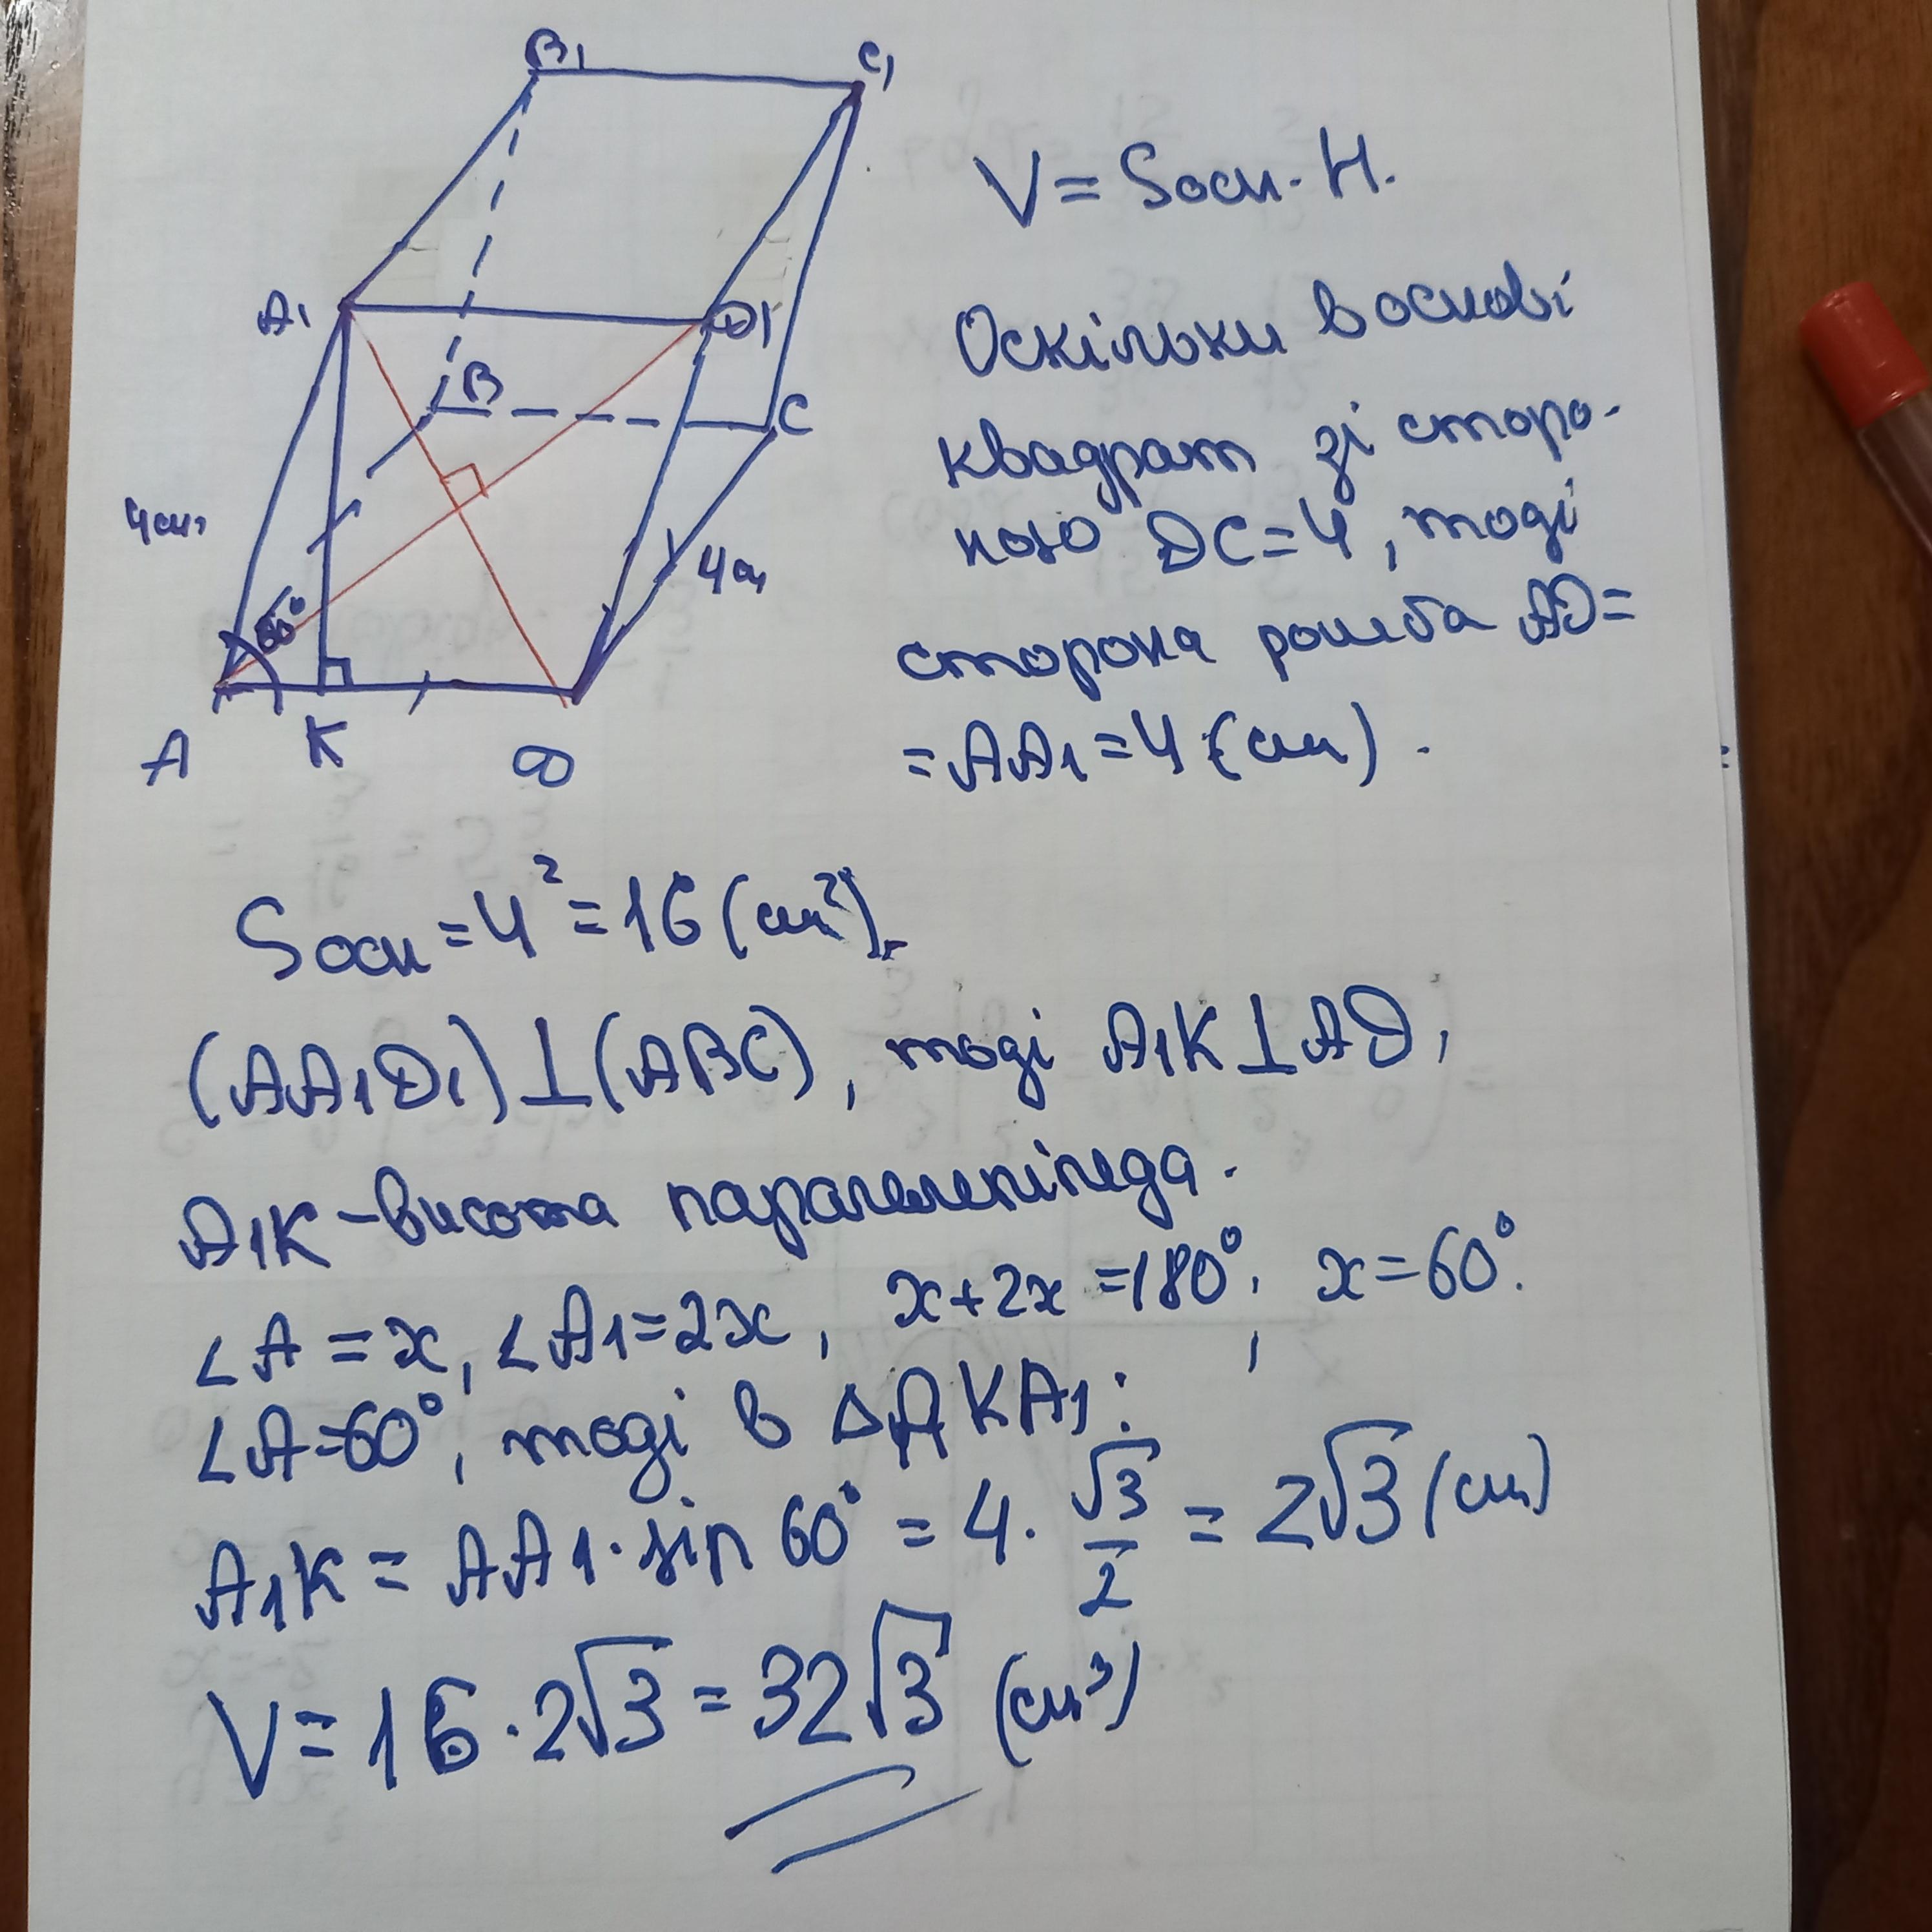 B₁
C₁
A₁
D₁
B
C
4см
60°
4см
A
K
D
V = Sосн · H.
Оскільки в основі
квадрат зі сторо-
ною DC=4, тоді
сторона ромба AD=
=AA₁=4 (см).
Sосн = 4² = 16 (см²).
(AA₁D₁)⊥(ABC), тоді A₁K⊥AD,
A₁K – висота паралелепіпеда.
∠A = x, ∠A₁ = 2x, x+2x = 180°; x = 60°.
∠A=60°, тоді в △AKA₁:
A₁K = AA₁ · sin 60° = 4 · √3/2 = 2√3 (см)
V = 16 · 2√3 = 32√3 (см³)